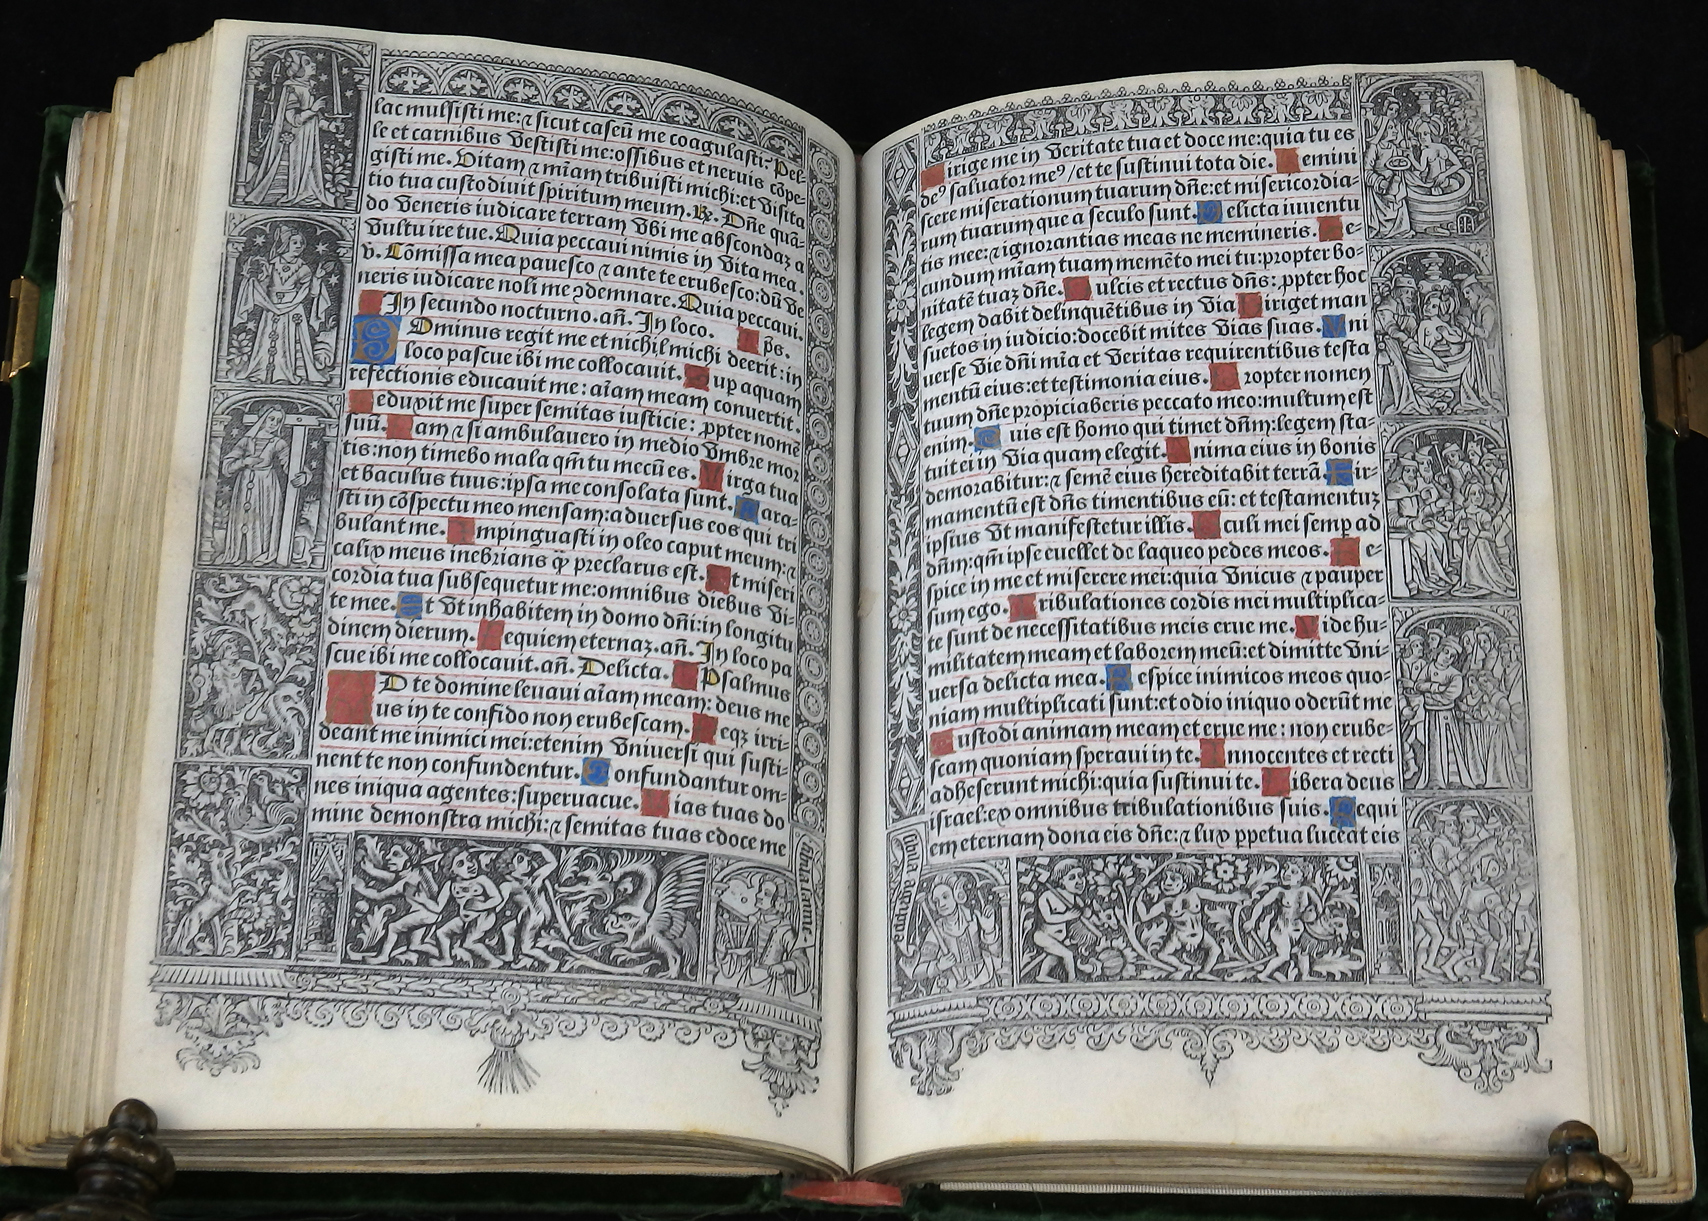 lac mulsisti me:⁊ sicut caseū me coagulasti. Pel-
le et carnibus vestisti me:ossibus et neruis cōpe-
gisti me. Vitam ⁊ miam tribuisti michi:et visita
tio tua custodiuit spiritum meum. ℟. Dñe quā-
do veneris iudicare terram vbi me abscondaz a
vultu ire tue. Quia peccaui nimis in vita mea.
v. Cōmissa mea pauesco ⁊ ante te erubesco:dū ve
neris iudicare noli me ꝯdemnare. Quia peccaui.
In secundo nocturno. añ. In loco. p̄s.
Dominus regit me et nichil michi deerit: in
loco pascue ibi me collocauit. Sup aquam
refectionis educauit me: aīam meam conuertit.
eduxit me super semitas iusticie: ꝓpter nomē
suū. am ⁊ si ambulauero in medio vmbre mor
tis:non timebo mala qm̄ tu mecū es. Virga tua
et baculus tuus:ipsa me consolata sunt. Para-
sti in cōspectu meo mensam:aduersus eos qui tri
bulant me. Impinguasti in oleo caput meum:⁊
calix meus inebrians ꝙ̄ preclarus est. Et miseri
cordia tua subsequetur me:omnibus diebus vi-
te mee. Et vt inhabitem in domo dñi:in longitu
dinem dierum. Requiem eternaz. añ. In loco pa
scue ibi me collocauit. añ. Delicta. Psalmus
D te domine leuaui aīam meam: deus me
us in te confido non erubescam. eqz irri-
deant me inimici mei:etenim vniuersi qui susti-
nent te non confundentur. Confundantur om-
nes iniqua agentes:superuacue. ias tuas do
mine demonstra michi:⁊ semitas tuas edoce me
irige me in veritate tua et doce me:quia tu es
deꝰ saluator meꝰ/et te sustinui tota die. emini
scere miserationum tuarum dñe:et misericordia-
rum tuarum que a seculo sunt. Delicta iuuentu
tis mee:⁊ ignorantias meas ne memineris. e-
cundum miam tuam memēto mei tu:propter bo-
nitatē tuaz dñe. ulcis et rectus dñs: ꝓpter hoc
legem dabit delinquētibus in via iriget man
suetos in iudicio:docebit mites vias suas. Vni
uerse vie dñi mīa et veritas requirentibus testa
mentū eius:et testimonia eius. ropter nomen
tuum dñe propiciaberis peccato meo:multum est
enim. Quis est homo qui timet dñm:legem sta-
tuit ei in via quam elegit. nima eius in bonis
demorabitur:⁊ semē eius hereditabit terrā. Fir-
mamentū est dñs timentibus eū: et testamentuz
ipsius vt manifestetur illis. culi mei semp ad
dñm:qm̄ ipse euellet de laqueo pedes meos. e-
spice in me et miserere mei:quia vnicus ⁊ pauper
sum ego. ribulationes cordis mei multiplica-
te sunt de necessitatibus meis erue me. ide hu-
militatem meam et laborem meū:et dimitte vni-
uersa delicta mea. Respice inimicos meos quo-
niam multiplicati sunt:et odio iniquo oderūt me
ustodi animam meam et erue me: non erube-
scam quoniam speraui in te. Innocentes et recti
adheserunt michi:quia sustinui te. ibera deus
israel:ex omnibus tribulationibus suis. Requi
em eternam dona eis dñe:⁊ lux ꝑpetua luceat eis